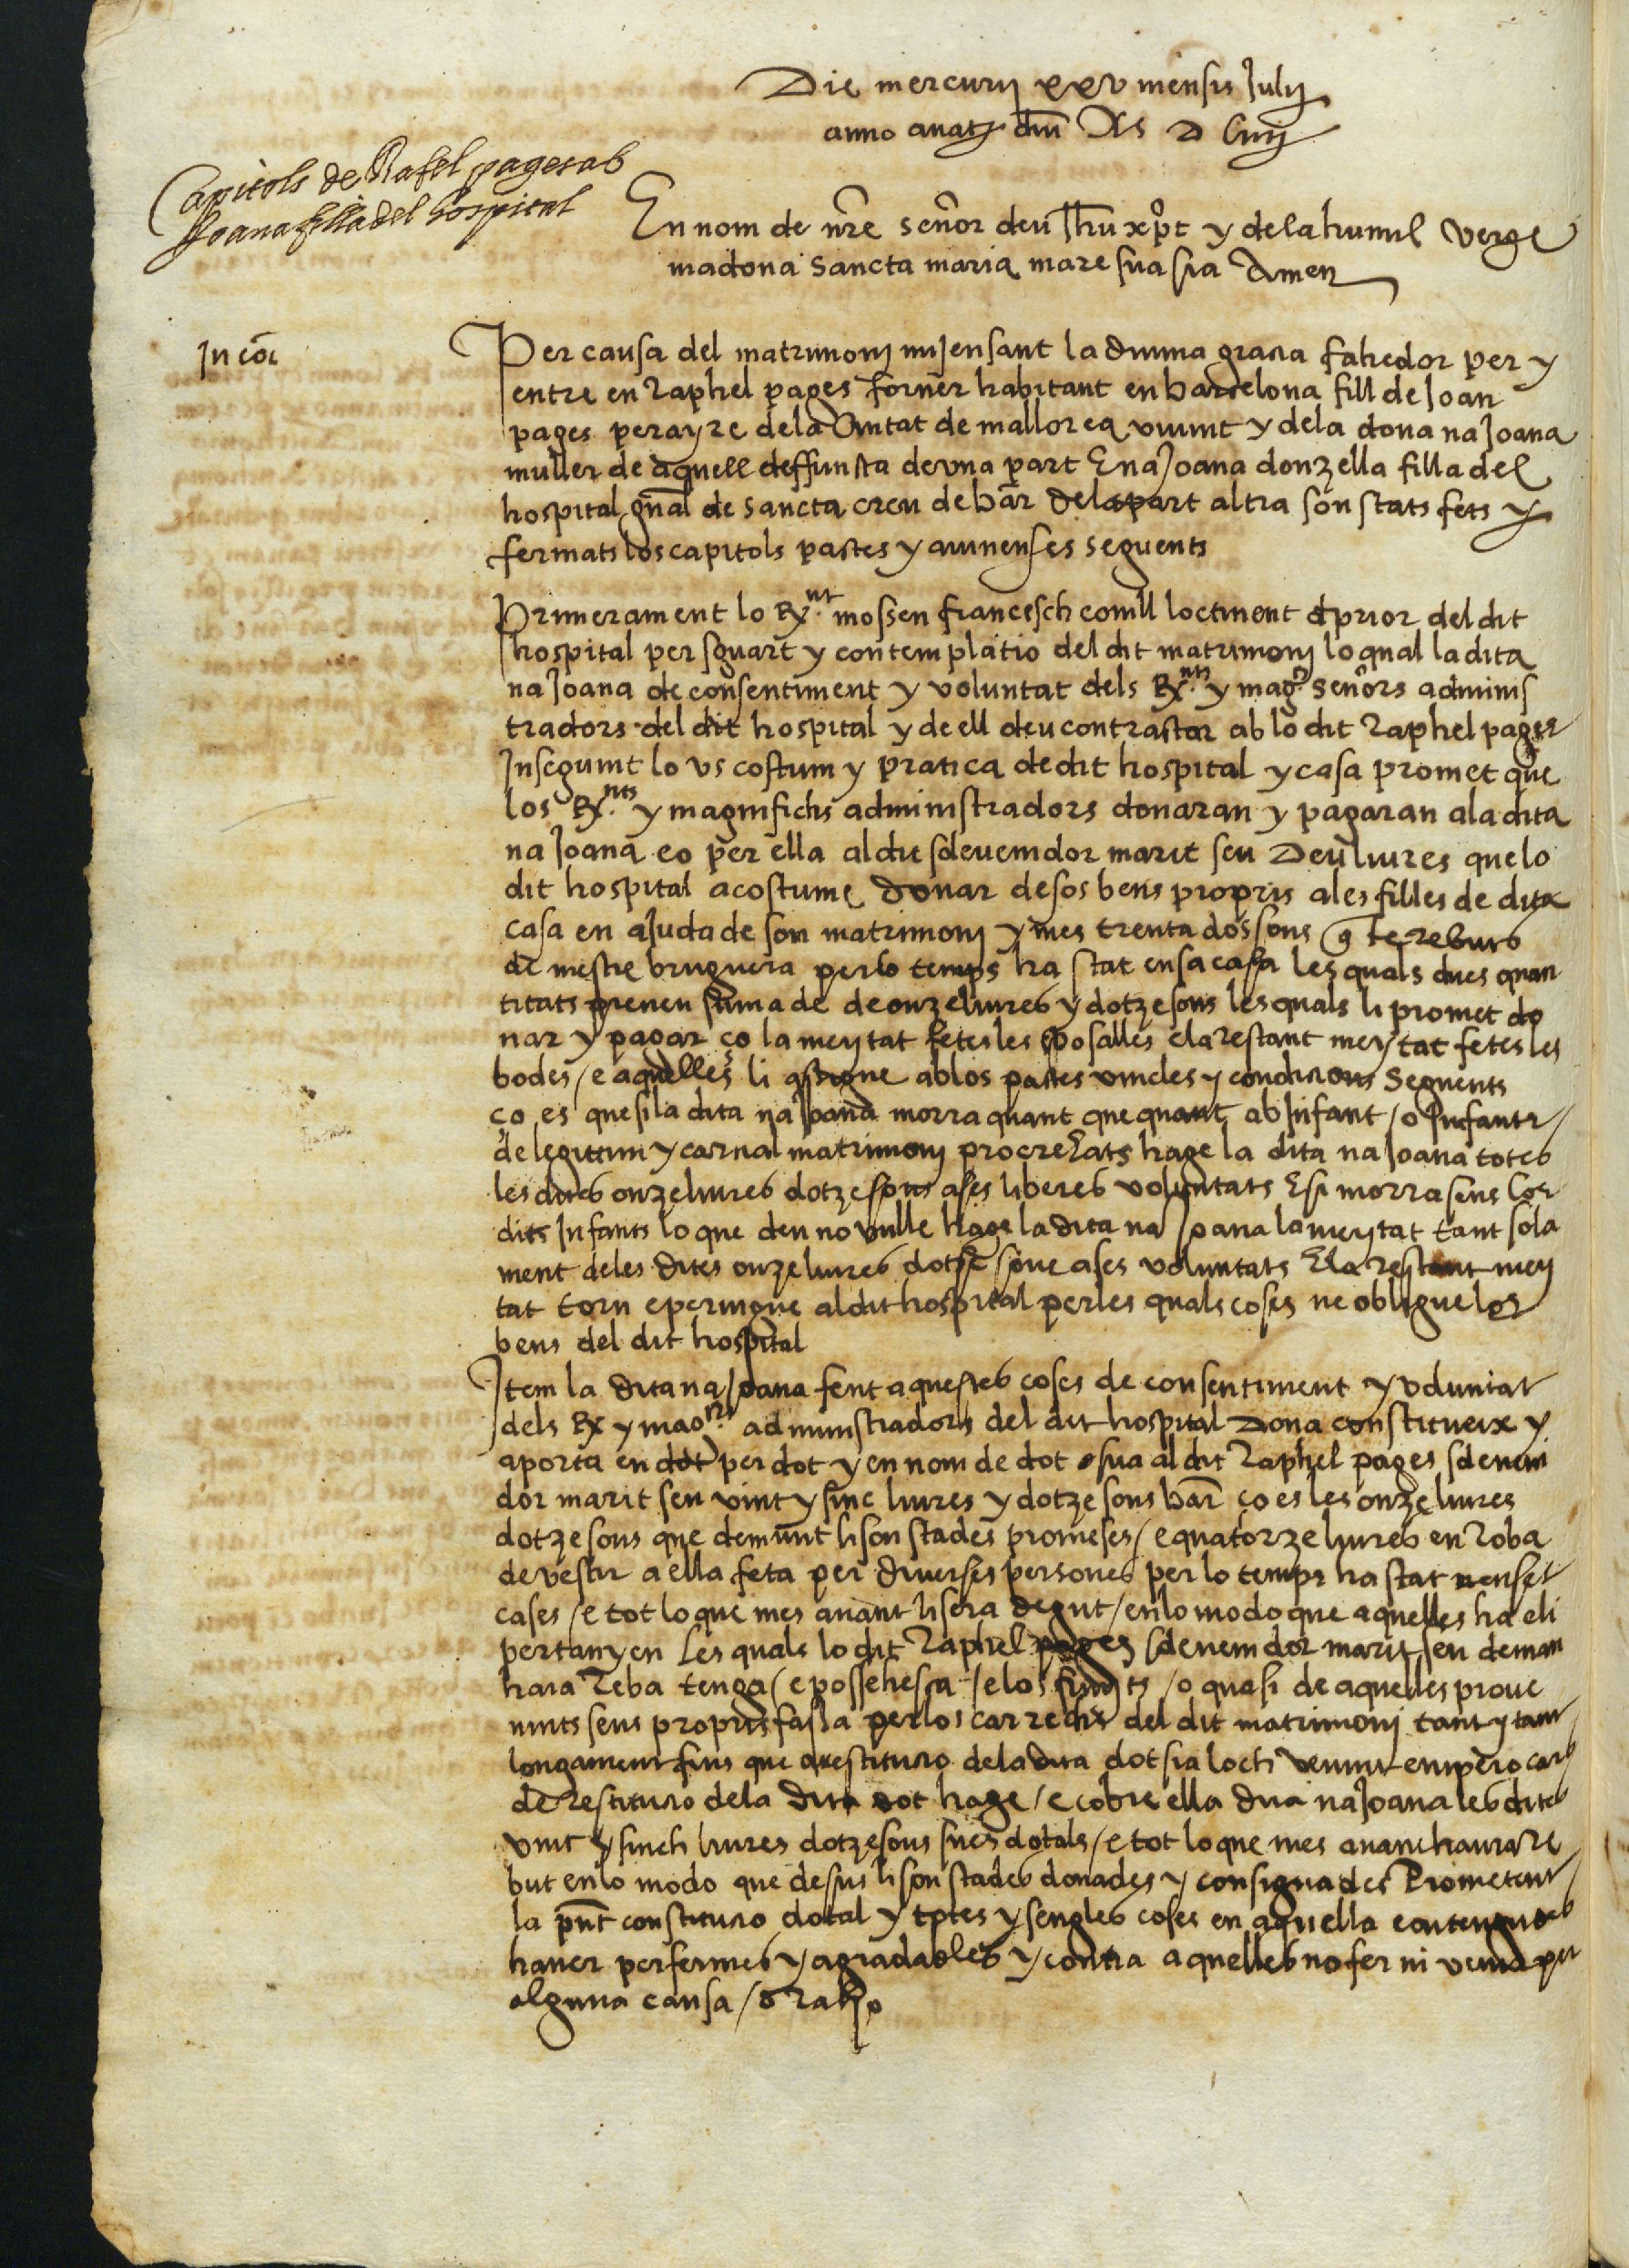 Die mercurij xxv mensis Julij
anno a nati dni M D Lviij
Capitols de Rafel pages ab
Joana filla del hospital
En nom de nre señor deu Jhu xpt y dela humil verge
madona sancta maria mare sua sia Amen
In coi
Per causa del matrimonj mijensant la divina gracia fahedor per y
entre en Raphel pages forner habitant en barcelona fill de Joan
pages perayre dela Ciutat de mallorca vivint y dela dona na Joana
muller de aquell deffuncta de una part E na Joana donzella filla del
hospital gnal de sancta creu de bar dela part altra son stats fets y
fermats los capitols pactes y avinenses seguents
Primerament lo Rx.nt mossen francesch conill loctinent d prior del dit
hospital per sguart y contemplatio del dit matrimonj lo qual la dita
na Joana de consentiment y voluntat dels Rx.nts y mag.cs señors adminis
tradors del dit hospital y de ell deu contractar ab lo dit Raphel pages
Inseguint lo us costum y pratica de dit hospital y casa promet que
los Rx.nts y magnifichs administradors donaran y pagaran ala dita
na Joana eo per ella al dit sdevenidor marit seu Deu liures que lo
dit hospital acostume donar de sos bens propris ales filles de dita
casa en ajuda de son matrimonj y mes trenta dos sous q te rebuts
de mestre bruguera per lo temps ha stat en sa casa les quals dues quan
titats prenen suma de de onze liures y dotze sous les quals li promet do
nar y pagar ço la meytat fetes les sposalles e la restant meytat fetes les
bodes / e aquelles li assigne ab los pactes vincles y condicions seguents
ço es que si la dita na Joana morra quant que quant ab Infant / o Infants /
de legittim y carnal matrimonj procrehats hage la dita na Joana totes
les dites onze liures dotze sous a ses liberes voluntats E si morra sens los
dits Infants lo que deu no vulle hage la dita na Joana la meytat tant sola
ment deles dites onze liures dotze sous a ses voluntats E la restant mey
tat torn e pervingue al dit hospital per les quals coses ne obligue los
bens del dit hospital
Item la dita na Joana fent aquestes coses de consentiment y voluntat
dels Rx y mag.chs administradors del dit hospital Dona constitueix y
aporta en dot per dot y en nom de dot sua al dit Raphel pages sdeveni
dor marit seu vint y sinc liures y dotze sous bar ço es les onze liures
dotze sous que demunt li son stades promeses / e quatorze liures en roba
de vestir a ella feta per diverses persones per lo temps ha stat en ses
cases / e tot lo que mes avant li sera degut / en lo modo que aquelles ha e li
pertanyen Les quals lo dit Raphel pages sdevenidor marit seu deman
hara Reba tenga / e possehesca / e los fruyts / o quasi de aquelles prove
nints seus propris fassa per los carrechs del dit matrimonj tant y tant
longament fins que a restitucio dela dita dot sia loch vengut empero cas
de restitucio dela dita dot hage / e cobre ella dita na Joana les dites
vint y sinch liures dotze sous sues dotals / e tot lo que mes avant haura re
but en lo modo que desus li son stades donades y consignades Prometent /
la pnt constitucio dotal y totes y sengles coses en aquella contengudes
haver per fermes y agradables y contra aquelles no fer ni venir per
alguna causa / o raho